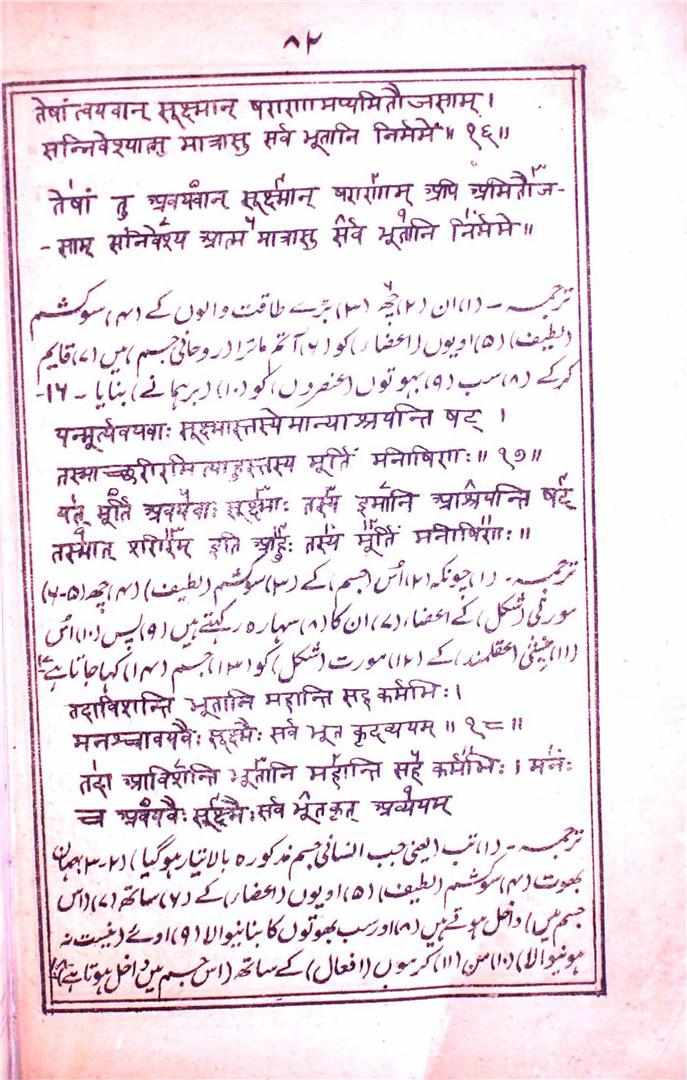 ۸۲
तेषांत्वयवान् सूक्ष्मान् षरारणामप्यमितौजसाम् ।
सन्निवेश्यात्म मात्रासु सर्व भूतानि निर्ममे ॥ १६ ॥
तेषां तु अवयवान् सूक्ष्मान् षरारणाम् अपि अमितौज-
-साम् सनिवेश्य आत्म मात्रासु सर्व भूतानि निर्ममे ॥
ترجمہ - (۱) ان (۲) چھ (۳) بڑے طاقت والوں کے (۴) سوکشم
(لطیف) (۵) اویوں (اعضار) کو (۶) آتم ماترا (روحانی جسم) میں (۷) قایم
کرکے (۸) سرب (۹) بہوتوں (عنصروں) کو (۱۰) (برہمانے) بنایا - ۱۶-
यन्मूर्त्यवयवाः सूक्ष्मास्तस्येमान्याश्रयन्ति षट् ।
तस्माच्छरीरमित्याहुस्तस्य मूर्तिं मनीषिरणः ॥ १७ ॥
यत् मूर्ति अवयवाः सूक्ष्माः तस्य इमानि आश्रयन्ति षट्
तस्मात् शरीरम् इति आहुः तस्य मूर्तिं मनीषिरणः ॥
ترجمہ - (۱) چونکہ (۲) اُس (جسم) کے (۳) سوکشم (لطیف) (۴) چھ (۵-۶)
مورتی (شکل) کے اعضاء (۷) ان کا (۸) سہارہ رکہتے ہیں (۹) پس (۱۰) اُس
(۱۱) (عقلمند) کے (۱۲) مورت (شکل) کو (۱۳) جسم (۱۴) کہا جاتا ہے ۱۷
तदाविशन्ति भूतानि महान्ति सह कर्मभिः ।
मनश्चावयवैः सूक्ष्मैः सर्व भूत कृदव्ययम् ॥ १८ ॥
तदा आविशन्ति भूतानि महान्ति सह कर्मभिः । मनः
च अवयवैः सूक्ष्मैः सर्व भूतकृत् अव्ययम्
ترجمہ - (۱) تب (یعنی جب انسانی جسم مذکورہ بالا تیار ہوگیا) (۲-۳) مہان
بھوت (۴) سوکشم (لطیف) (۵) اویوں (اعضار) کے (۶) ساتھ (۷) (اس
جسم میں) داخل ہوتے ہیں (۸) اور سب بھوتوں کا بنانیوالا (۹) (نیست نہ
ہونیوالا) (۱۰) من (۱۱) کرموں (افعال) کے ساتھ (اس جسم میں داخل ہوتا ہے) ۱۸